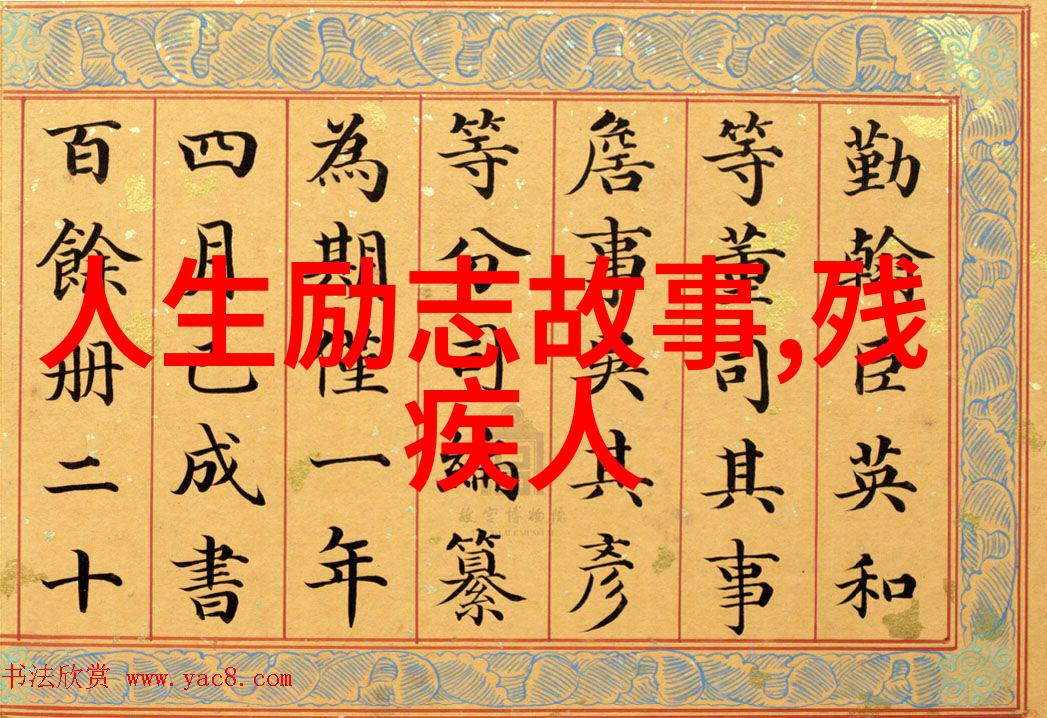 勤翰臣英和
等董司其事
詹事吳其彥
等分司編纂
為期僅一年
四月已成書
百餘册二十
人生励志故事,残
疾人
故宫博物院
书法欣赏 www.yac8.com